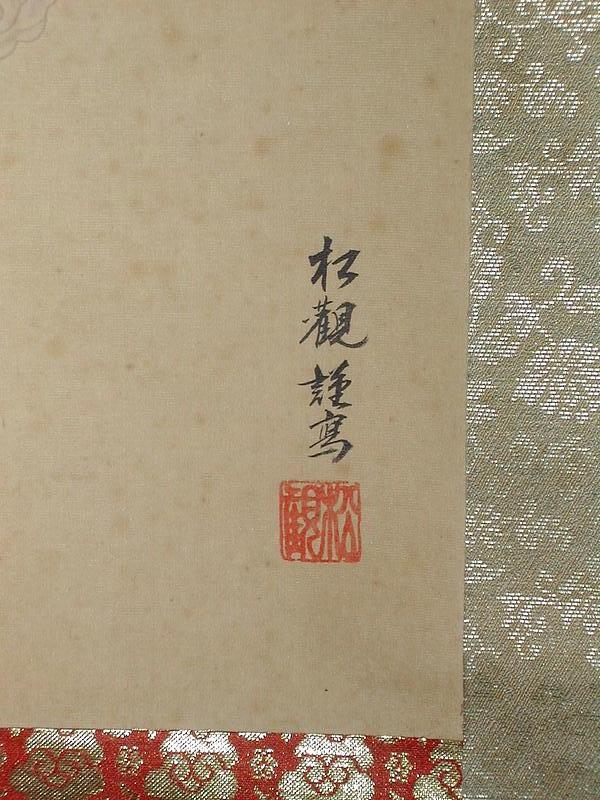 松觀謹寫
松觀